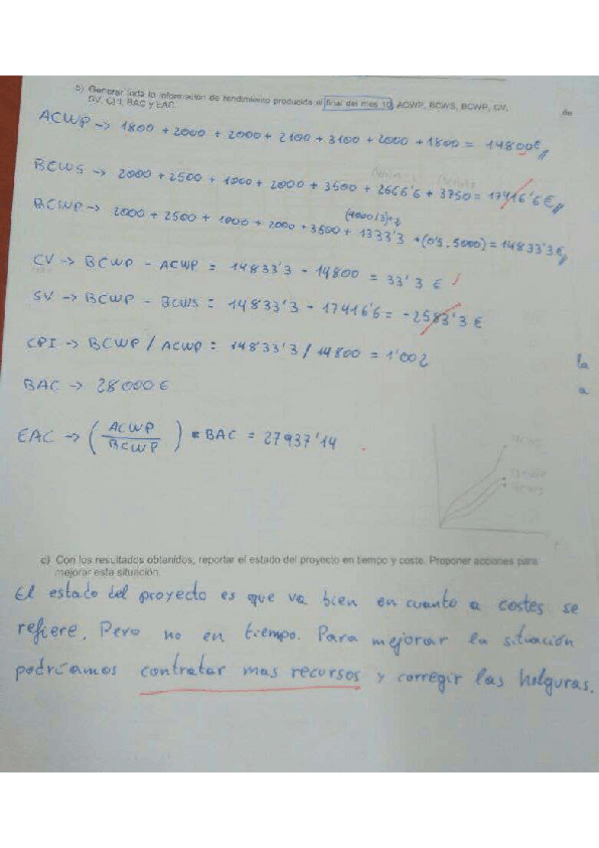 b) Generar toda la información de rendimiento producida al final del mes 10: ACWP, BCWS, BCWP, CV,
SV, CPI, BAC y EAC.
de
ACWP → 1800 + 2000 + 2000 + 2100 + 3100 + 2000 + 1800 = 14800€
BCWS → 2000 + 2500 + 1000 + 2000 + 3500 + 2666'6 + 3750 = 17416'6€
(4000/3)
BCWP → 2000 + 2500 + 1000 + 2000 + 3500 + 1333'3 + (0'5 . 5000) = 14833'3€
CV → BCWP - ACWP = 14833'3 - 14800 = 33'3 €
SV → BCWP - BCWS = 14833'3 - 17416'6 = -2583'3 €
CPI → BCWP / ACWP = 14833'3 / 14800 = 1'002
la
BAC → 28000€
a
EAC → (ACWP / BCWP) * BAC = 27937'14
c) Con los resultados obtenidos, reportar el estado del proyecto en tiempo y coste. Proponer acciones para
mejorar esta situación.
El estado del proyecto es que va bien en cuanto a costes se
refiere. Pero no en tiempo. Para mejorar la situación
podríamos contratar mas recursos y corregir las holguras.